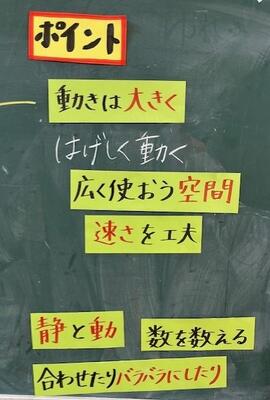 ポイント
動きは大きく
はげしく動く
広く使おう空間
速さを工夫
静と動 数を数える
合わせたりバラバラにしたり